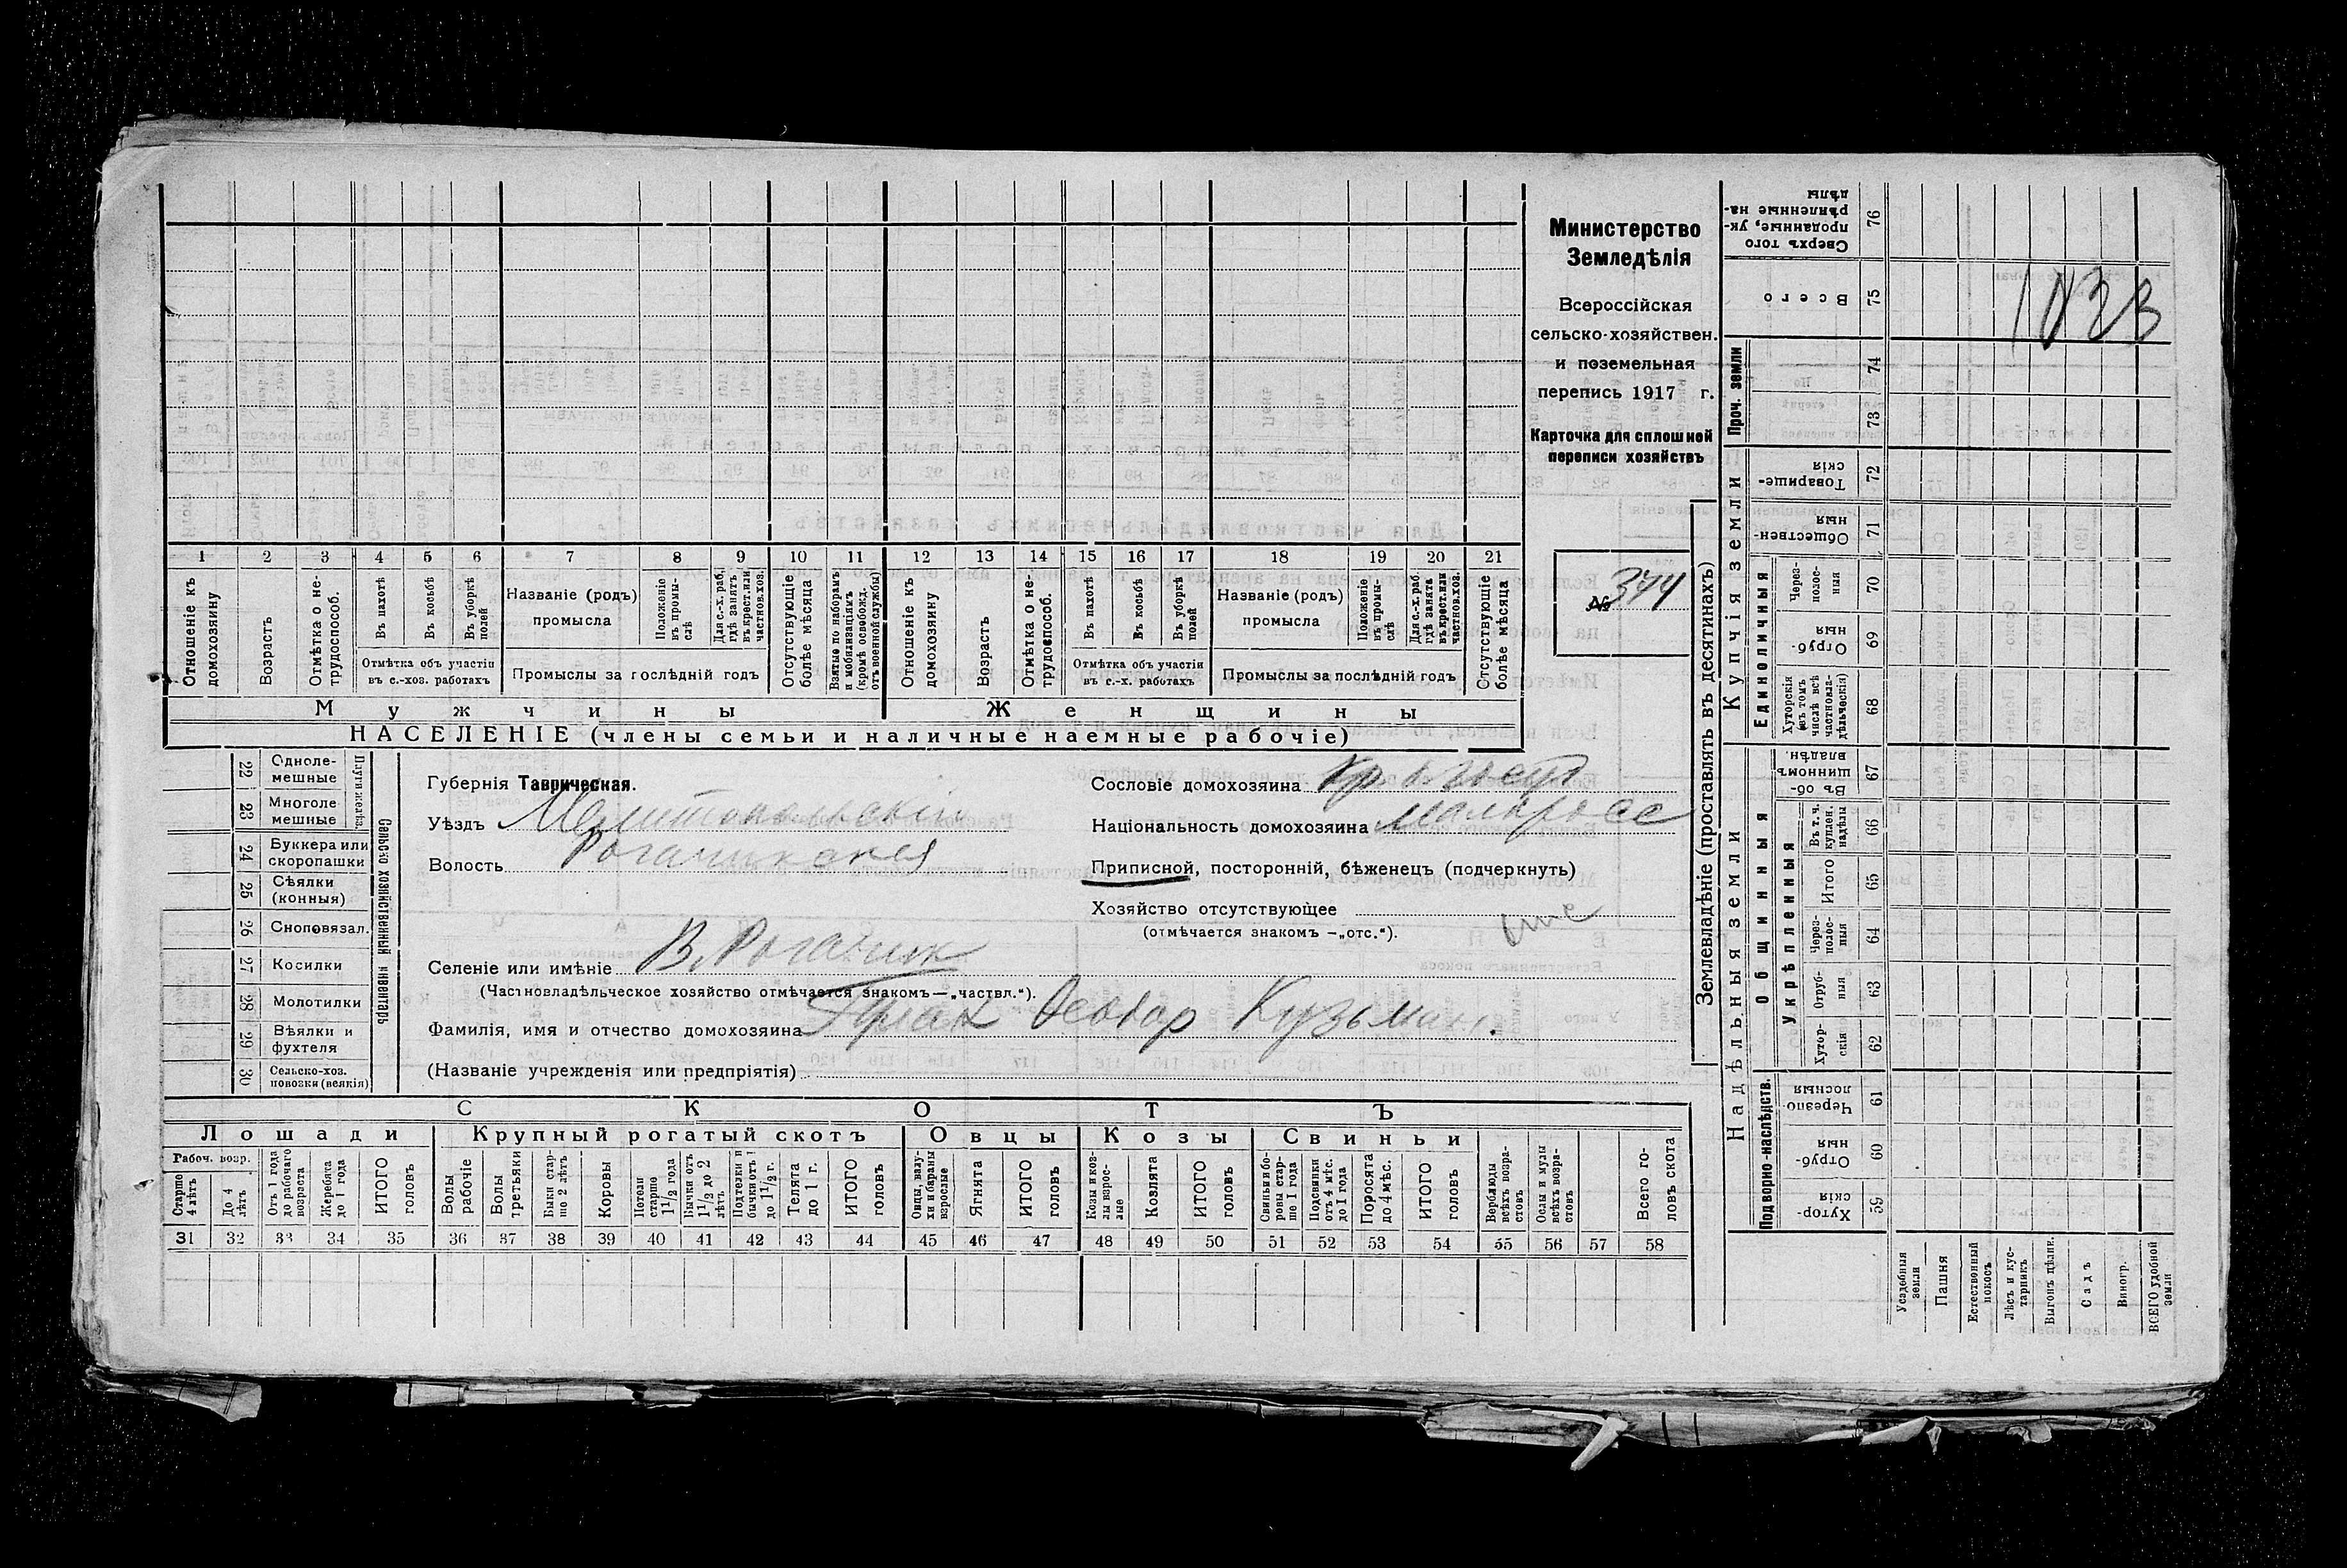 Министерство
Земледѣлія
Всероссійская
сельско-хозяйствен.
и поземельная
перепись 1917 г.
Карточка для сплошней
переписи хозяйствъ
№ 344
1 2 3 4 5 6 7 8 9 10 11 12 13 14 15 16 17 18 19 20 21
Отношеніе къ домохозяину
Возрастъ
Отмѣтка о не-трудоспособ.
Въ пахотѣ
Въ косьбѣ
Въ уборкѣ полей
Отмѣтка объ участіи въ с.-хоз. работахъ
Названіе (родъ) промысла
Положеніе въ промы-слѣ
Для с.-х. раб. гдѣ занятъ въ крест. или частнов. хоз.
Промыслы за послѣдній годъ
Отсутствующіе болѣе мѣсяца
Взятые по наборамъ и мобилизаціямъ (кромѣ освобожд. отъ военной службы)
Отношеніе къ домохозяину
Возрастъ
Отмѣтка о не-трудоспособ.
Въ пахотѣ
Въ косьбѣ
Въ уборкѣ полей
Отмѣтка объ участіи въ с.-х. работахъ
Названіе (родъ) промысла
Положеніе въ промы-слѣ
Для с.-х. раб. гдѣ занята въ крест. или частнов. хоз.
Промыслы за послѣдній годъ
Отсутствующіе болѣе мѣсяца
Мужчины Женщины
НАСЕЛЕНІЕ (члены семьи и наличные наемные рабочіе)
Сельско хозяйственный инвентарь
Плуги желѣз.
22 Одноле-мешные
23 Многоле мешные
24 Буккера или скоропашки
25 Сѣялки (конныя)
26 Сноповязал.
27 Косилки
28 Молотилки
29 Вѣялки и фухтеля
30 Сельско-хоз. повозки (всякія)
Губернія Таврическая.
Уѣздъ Мелитопольскій
Волость Рогачикская
Сословіе домохозяина
Національность домохозяина малоросс
Приписной, посторонній, бѣженецъ (подчеркнуть)
Хозяйство отсутствующее отс
(отмѣчается знакомъ —„отс.“).
Селеніе или имѣніе В. Рогачик
(Частновладѣльческое хозяйство отмѣчается знакомъ—„частвл.“).
Фамилія, имя и отчество домохозяина Феодор Кузьмич.
(Названіе учрежденія или предпріятія)
СКОТЪ
Лошади Крупный рогатый скотъ Овцы Козы Свиньи
Рабоч. возр.
Старше 4 лѣтъ
До 4 лѣтъ
Отъ 1 года до рабочаго возраста
Жеребята до 1 года
ИТОГО головъ
Волы рабочіе
Волы третьяки
Быки стар-ше 2 лѣтъ
Коровы
Нетели старше 1 1/2 года
Бычки отъ 1 1/2 до 2 лѣтъ
Подтелки и бычки отъ 1 до 1 1/2 г.
Телята до 1 г.
ИТОГО головъ
Овцы, валу-хи и бараны взрослые
Ягнята
ИТОГО головъ
Козы и коз-лы взрос-лые
Козлята
ИТОГО головъ
Свиньи и бо-ровы стар-ше 1 года
Подсвинки отъ 4 мѣс. до 1 года
Поросята до 4 мѣс.
ИТОГО головъ
Верблюды всѣхъ возра-стовъ
Ослы и мулы всѣхъ возра-стовъ
Всего го-ловъ скота
31 32 33 34 35 36 37 38 39 40 41 42 43 44 45 46 47 48 49 50 51 52 53 54 55 56 57 58
Землевладѣніе (проставлять въ десятинахъ)
Купчія земли
Надѣльныя земли
Сверхъ того проданные, ук-рѣпленные на-дѣлы 76
Всего 75
Проч. земли
74
73
Товарище-скія 72
Обществен-ныя 71
Единоличныя
Через-полос-ныя 70
Отруб-ныя 69
Хуторскія (въ томъ числѣ всѣ частновла-дѣльческія) 68
Общинныя
Въ об-щинномъ владѣн. 67
Укрѣпленныя
Въ т. ч. куплен. надѣлы 66
Итого 65
Через-полос-ныя 64
Отруб-ныя 63
Хутор-скія 62
Подворно-наслѣдств.
Черезпо лосныя 61
Отруб-ныя 60
Хутор-скія 59
Усадебныя земли
Пашня
Естественный покосъ
Лѣсъ и кус-тарникъ
Выгонъ цѣлик.
Садъ
Виногр.
ВСЕГО удобной земли